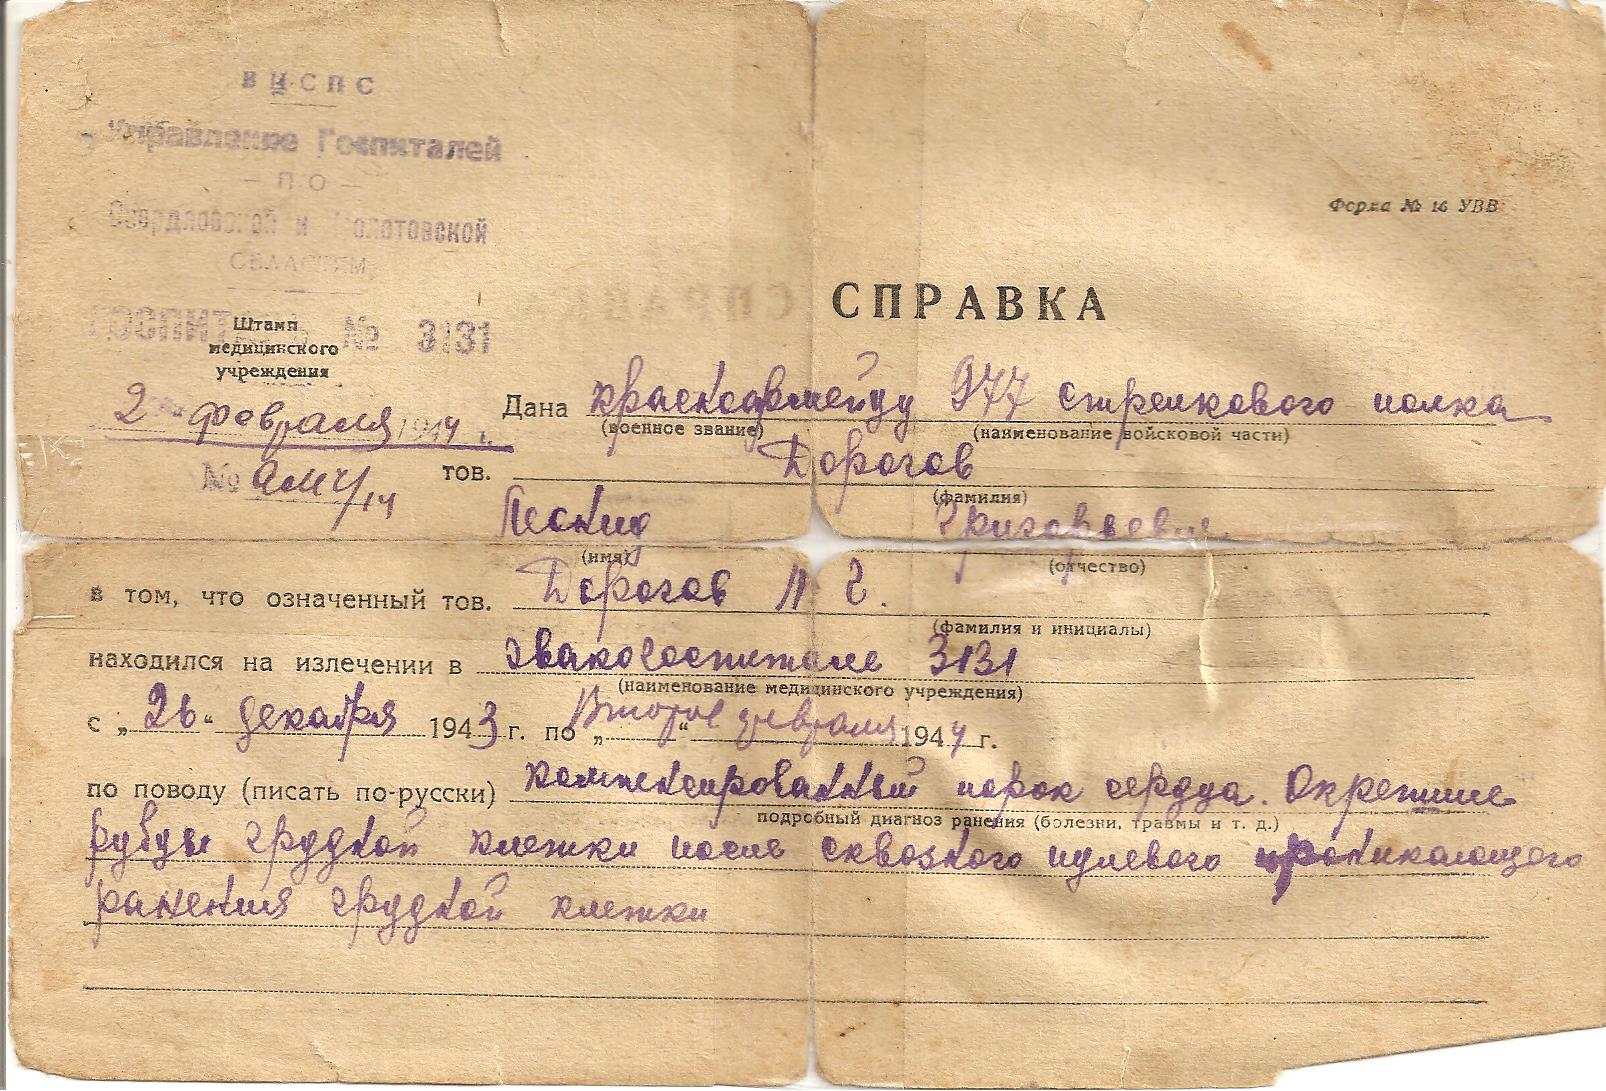 ВЦСПС
Управление Госпиталей
— ПО —
Свердловской и Молотовской
ОБЛАСТЯМ
ГОСПИТАЛЬ № 3131
Штамп
медицинского
учреждения
Форма № 16 УВВ
СПРАВКА
2 февраля 1944 г.
Дана красноармейцу 977 стрелкового полка
(военное звание) (наименование войсковой части)
№
тов. Дорогов
(фамилия)
Леонид Григорьевич
(имя) (отчество)
в том, что означенный тов. Дорогов Л Г.
(фамилия и инициалы)
находился на излечении в эвакогоспитале 3131
(наименование медицинского учреждения)
с „26“ декабря 1943 г. по „Второе“ февраля 1944 г.
по поводу (писать по-русски) компенсированный порок сердца. Окрепшие
подробный диагноз ранения (болезни, травмы и т. д.)
рубцы грудной клетки после сквозного пулевого проникающего
ранения грудной клетки